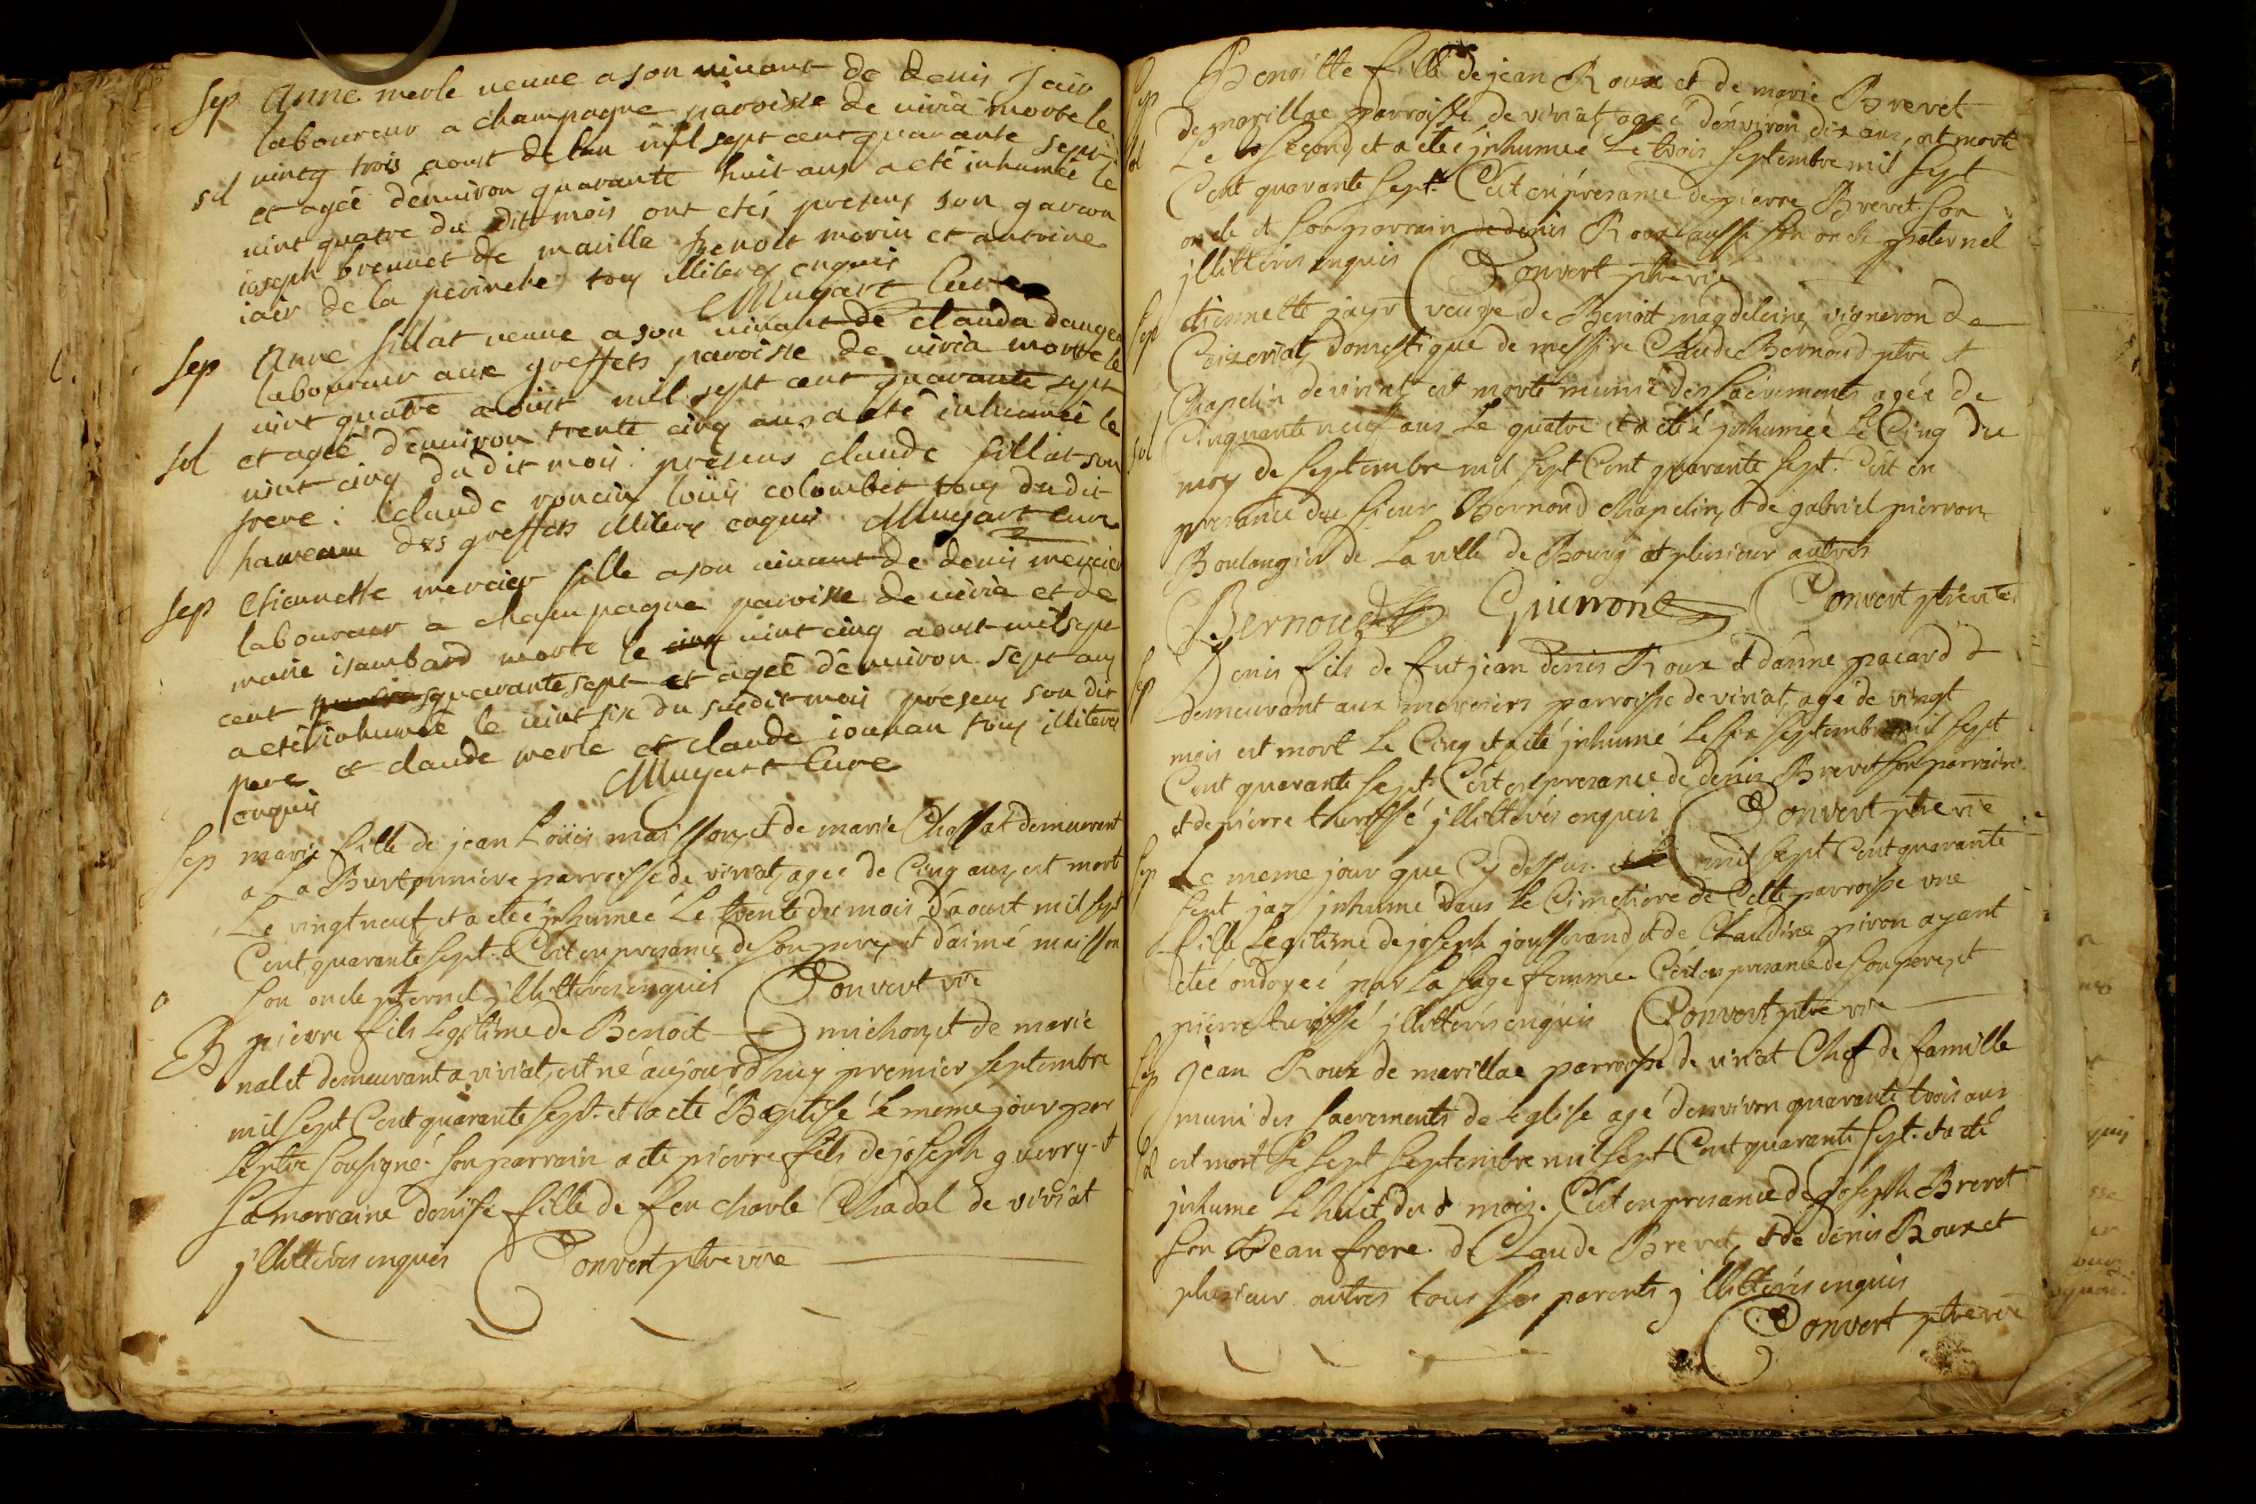 sep Anne merle veuve a son vivant de denis Jair
laboureur a champagne paroisse de viria morte le
vintg trois aoust de lan mil sept cent quarante sept
sol et agée d'environ quarante huit ans a eté inhumée le
vint quatre du dit mois ont etés presens son garcon
ioseph brevuet de maville benoit morin et antoine
iair de la perinche tous illiteres enquis
Muyart Curé
sep Anne fillat veuve a son vivant de clauda
laboureur aux greffets paroisse de viria morte le
vint quatre aoust mil sept cent quarante sept
sol et agée d'environ trente cinq ans a eté inhumée le
vint cinq du dit mois : presens claude fillat son
frere : claude loüis colombet tous du dit
hameau des greffets illiteres enquis Muyart cure
sep Etiennette mercier fille a son vivant de denis mercier
laboureur a champagne paroisse de viria et de
marie isambard morte le cinq vint cinq aoust mil sept
cent quarante sept et agée d'environ sept ans
a eté inhumée le vint six du susdit mois presens son dit
pere et claude merle et claude iouvan tous illiteres
enquis Muyart Cure
sep marie fille de jean Loüis maisson, et de marie Chossat demeurent
a La Burtonniere parroisse de viriat, agée de Cinq ans, est mort
Le vingt neuf, et a eteé jnhumeé Le trente du mois d'aoust mil sept
Cent quarante sept. C'est en presance de son pere, et d'aimé maisson
son oncle pternel jllittérés enquis Convert vre
B pierre fils Legitime de Benoit michon, et de marie
nalet demeurant a viriat, est né aujourd'huy premier septembre
mil sept Cent quarante sept. et a eté Baptisé le meme jour par
Le ptre sousigné. son parrain a eté pierre fils de joseph guerry. et
sa marraine denise fille de feu charle Chadal de viriat
jllittérés enquis Convert ptre vre
sep Benoitte fille de jean Roux et de marie Brevet
de marillac parroisse de viriat, ageé d'environ dix ans, est morte
sol Le second, et a eteé jnhumeé Le trois septembre mil sept
Cent quarante sept. C'est en presance de pierre Brevet. son
oncle et son parrain de denis Roux aussi son oncle paternel
jllittérés enquis Convert ptre vre
sep etiennette jayr veuve de Benoit magdeleine, vigneron de
Ceizeriat, domestique de messire Claude Bernoud ptre et
Chapelin de viriat, est morte munie des sacrements ageé de
sol Cinquante neuf ans Le quatre et a eté jnhumeé Le Cinq du
moy de septembre mil sept Cent quarante sept. C'est en
presance du sieur Bernoud Chapelin, et de gabriel pierron
Boulangier de La ville de Bourg et plusieur autres
Bernoud Convert ptre vre
sep Denis fils de fut jean denis Roux et d'anne pacard et
demeurant aux merciers parroisse de viriat, agé de vingt
mois est mort Le Cinq et a eté jnhumé Le six septembre mil sept
Cent quarante sept. C'est en presance de denis Brevet son parrain.
et de pierre turossé jllittérés enquis Convert ptre vre
sep Le meme jour que Cy dessus. mil sept Cent quarante
sept jay jnhume dans Le Cimetiere de Cette parroisse une
fille Legitime de joseph jousserand, et de Claudine piron ayant
eteé ondoyeé par La sage femme. C'est en presance de son pere, et
pierre turossé jllittérés enquis Convert ptre vre
sep jean Roux de marillac parroisse de viriat Chef de famille
muni des sacrements de L'eglise agé denviron quarante trois ans
sol est mort Le sept septembre mil sept Cent quarante sept. et a eté
jnhumé Le huit du d mois. C'est en presance de joseph Brevet
son Beau frere. de Claude Brevet, et de denis Roux et
plusieur autres tous ses parents jllittérés enquis
Convert ptre vre